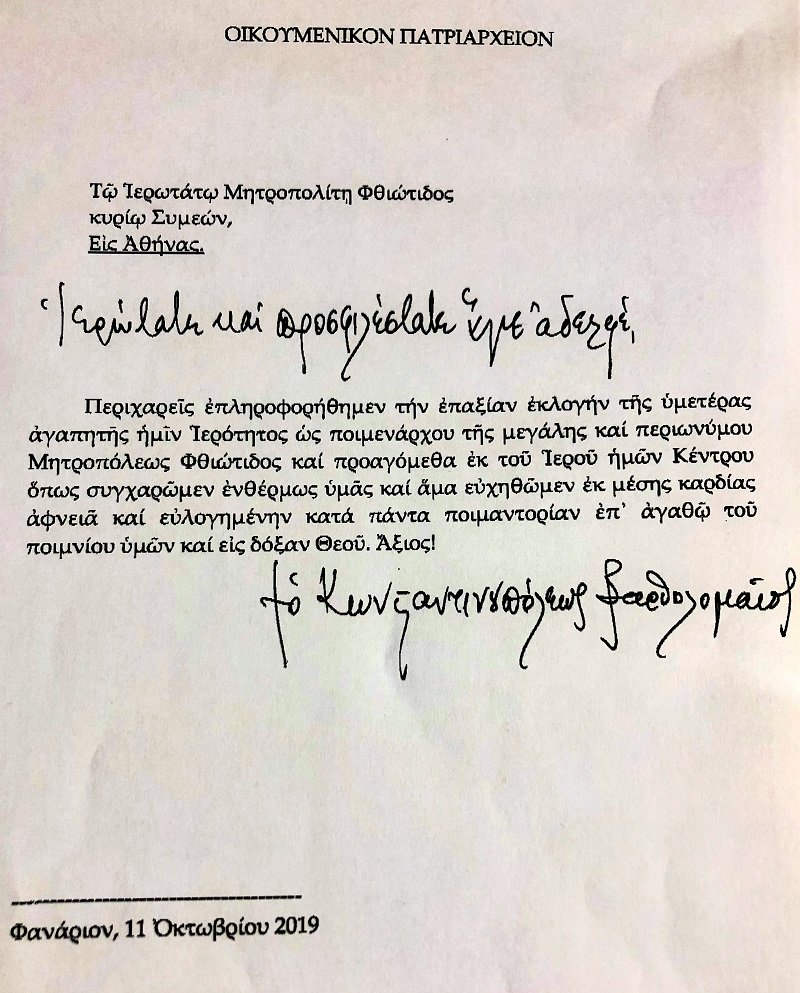 ΟΙΚΟΥΜΕΝΙΚΟΝ ΠΑΤΡΙΑΡΧΕΙΟΝ
Τῷ Ἱερωτάτῳ Μητροπολίτῃ Φθιώτιδος
κυρίῳ Συμεών,
Εἰς Ἀθήνας.
Ἱερώτατε καί προσφιλέστατε ἅγιε ἀδελφέ,
Περιχαρεῖς ἐπληροφορήθημεν τήν ἐπαξίαν ἐκλογήν τῆς ὑμετέρας
ἀγαπητῆς ἡμῖν Ἱερότητος ὡς ποιμενάρχου τῆς μεγάλης καί περιωνύμου
Μητροπόλεως Φθιώτιδος καί προαγόμεθα ἐκ τοῦ Ἱεροῦ ἡμῶν Κέντρου
ὅπως συγχαρῶμεν ἐνθέρμως ὑμᾶς καί ἅμα εὐχηθῶμεν ἐκ μέσης καρδίας
ἀφνειᾶ καί εὐλογημένην κατά πάντα ποιμαντορίαν ἐπ' ἀγαθῷ τοῦ
ποιμνίου ὑμῶν καί εἰς δόξαν Θεοῦ. Ἄξιος!
† ὁ Κωνσταντινουπόλεως Βαρθολομαῖος
Φανάριον, 11 Ὀκτωβρίου 2019